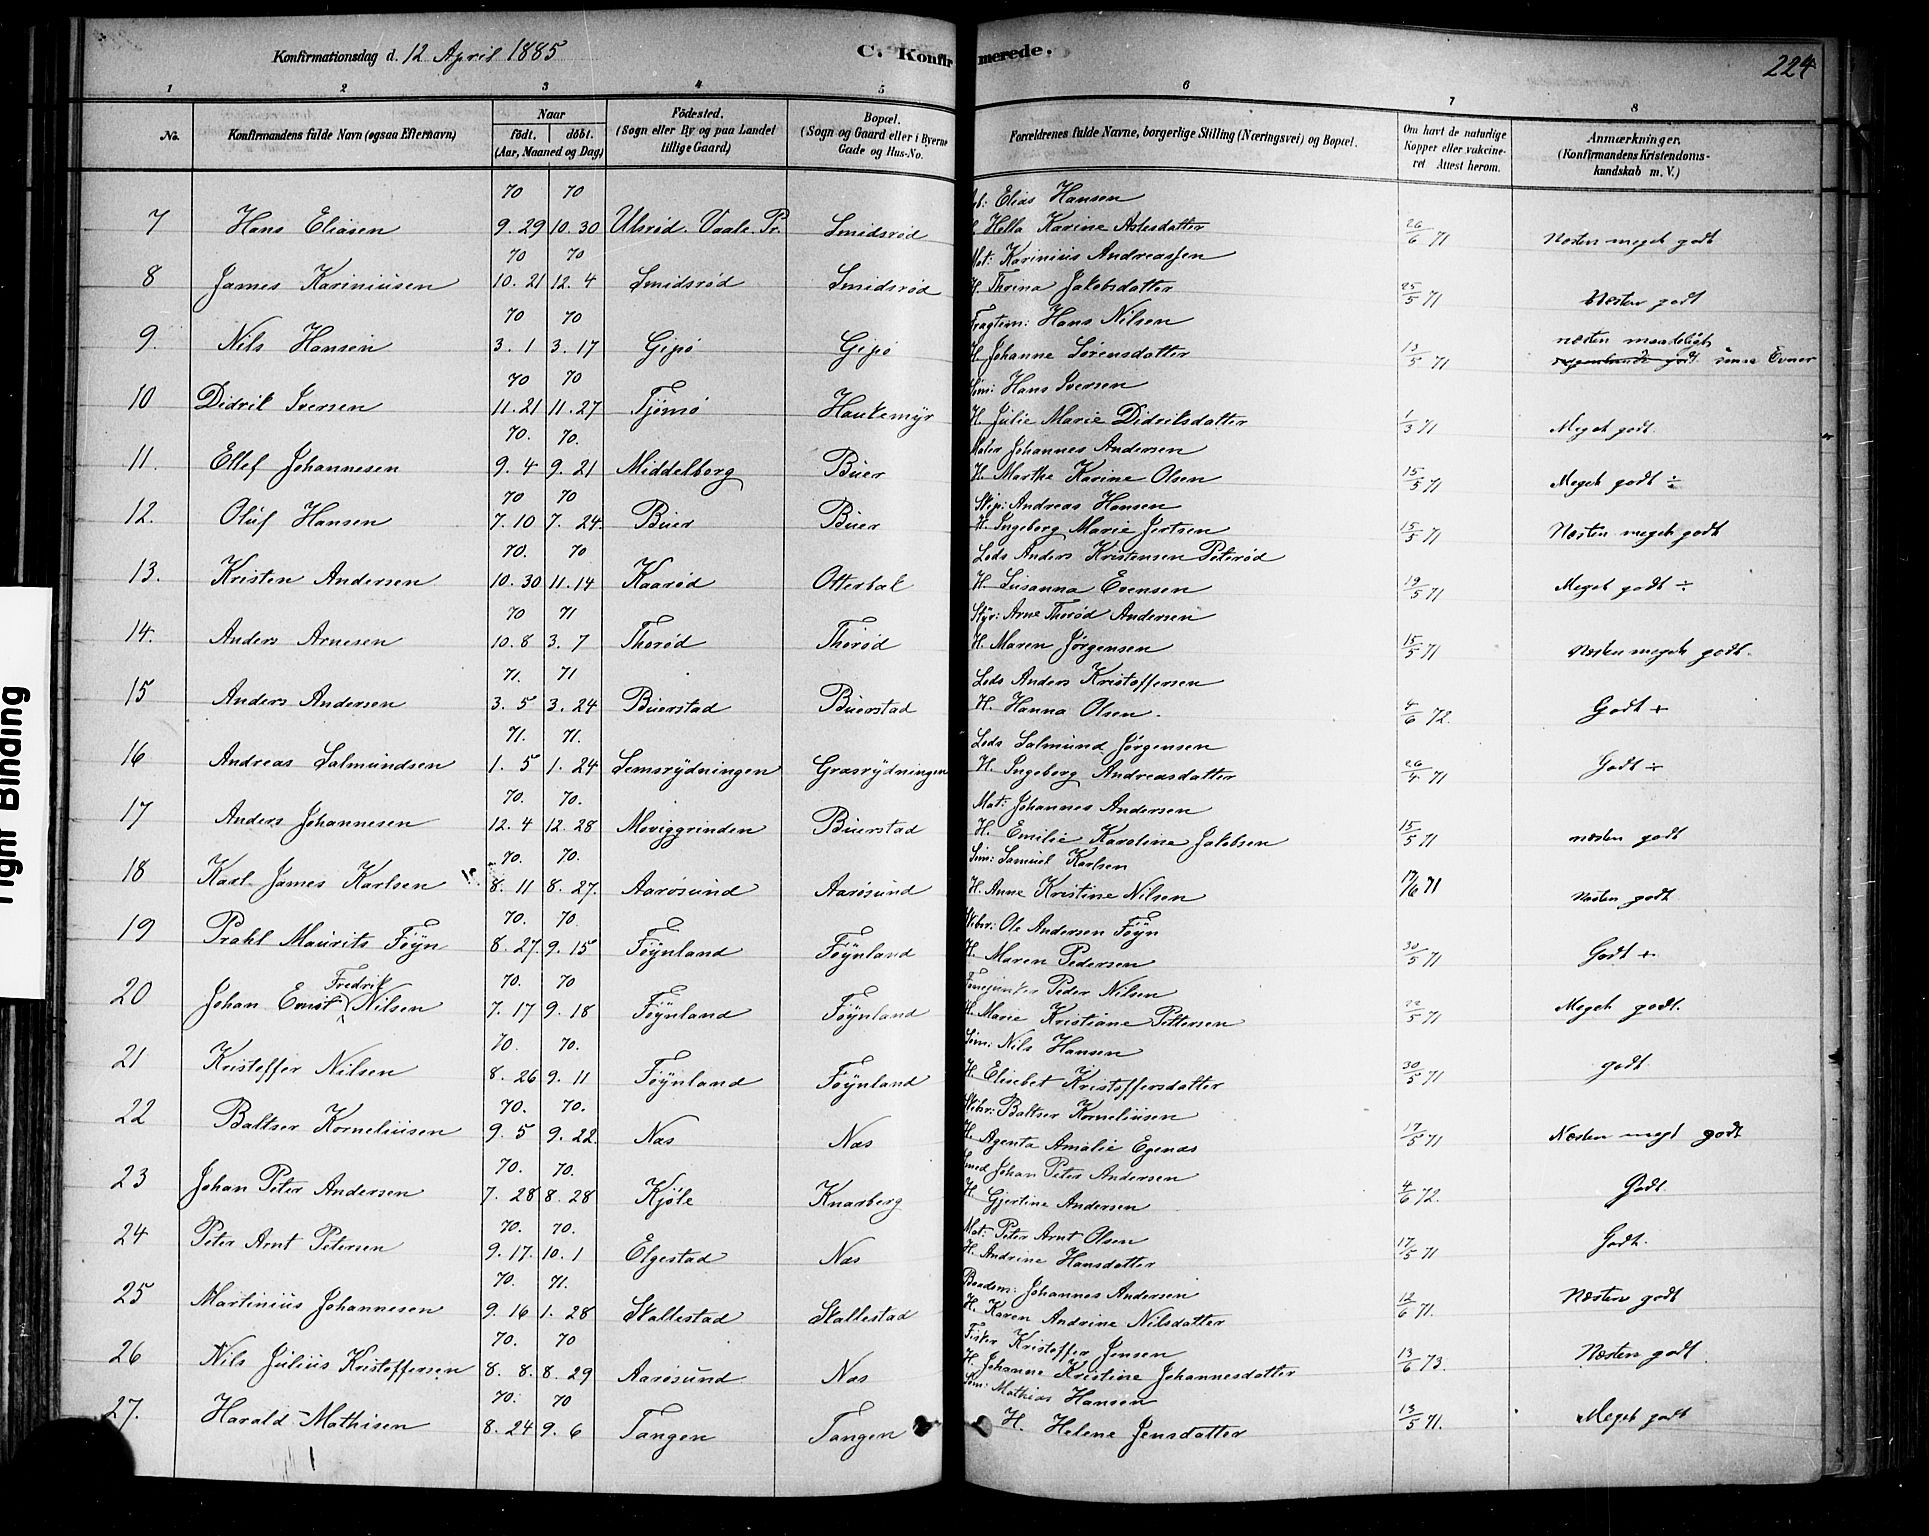 Konfirmationsdag d. 12 April 1885
C. Konfirmerede.
224
1 2 3 4 5 6 7 8
No. Konfirmandens fulde Navn (ogsaa Efternavn) Naar födt. döbt. (Aar, Maaned og Dag) Födested. (Sogn eller By og paa Landet tillige Gaard) Bopæl. (Sogn og Gaard eller i Byerne Gade og Hus-No. Forældrenes fulde Navne, borgerlige Stilling (Næringsvei) og Bopæl. Om havt de naturlige Kopper eller vakcineret Attest herom. Anmærkninger. (Konfirmandens Kristendomskundskab m. V.)
70 70 Elias Hansen
7 Hans Eliasen 9. 29 10. 30 Ulsrød. Vaale. Pr. Smidsrød Hella Karine Aslesdatter 26/6 71 Næsten meget godt
70 70 Mat: Karinius Andreassen
8 James Kariniusen 10. 21 12. 4 Smidsrød Smidsrød H. Thrina Jakobsdatter 25/5 71 Næsten godt
70 70 Fragtem: Hans Nilsen
9. Nils Hansen 3. 1 3. 17 Gipø Gipø H. Johanne Sørensdatter 13/5 71 næsten maadeligt godt smaa Evner
70 70 Søm: Hans Iversen
10 Didrik Iversen 11. 21 11. 27 Tjømø Haukemyr H. Julie Marie Didriksdatter 1/3 71 Meget godt.
70. 70. Mater Johannes Andersen
11. Ellef Johannesen 9. 4 9. 21 Middelborg Buer H. Marthe Karine Olsen 15/5 71 Meget godt ÷
70 70 Skip: Andreas Hansen
12. Oluf Hansen 7. 10 7. 24. Buer Buer H. Ingeborg Marie Jertsen 15/5 71 Næsten meget godt
70. 70 Lods Anders Kristensen Peterød
13. Kristen Andersen 10. 30 11. 14 Kaarød Otterbæk H. Susanna Evensen 19/5 71 Meget godt ÷
70 71 Styr: Arne Thorød Andersen
14. Anders Arnesen 10. 8 3. 7 Thorød Thorød H. Maren Jørgensen 15/5 71 Næsten meget godt.
71. 71 Lods Anders Kristoffersen
15 Anders Andersen 3. 5 3. 24 Buerstad Buerstad H. Hanna Olsen. 4/6 72. Godt +
71. 71. Lods Salmund Jørgensen
16 Andreas Salmundsen 1. 5 1. 24 Semsrydningen Græsrydningen H. Ingeborg Andreasdatter 26/4 71 Godt ÷
70. 70. Mat: Johannes Andersen
17 Anders Johannesen 12. 4 12. 28 Moviggrinden Buerstad H. Emilie Karoline Jakobsen 15/5 71 næsten godt
70. 70. Søm: Samuel Karlsen
18 Karl James Karlsen 8. 11 8. 27. Aarøsund Aarøsund H. Anne Kristine Nilsen 17/6 71 Næsten godt
70. 70. Skibsr: Ole Andersen Føyn
19 Prahl Maurits Føyn 8. 27. 9. 15 Føynland Føynland H. Maren Pedersen 30/5 71 Godt +
70. 70 Peder Nilsen
20 Johan Ernst Fredrik Nilsen 7. 17 9. 18 Føynland Føynland H. Marie Kristiane Pettersen 22/5 71 Meget godt.
70. 70. Søm: Nils Hansen
21 Kristoffer Nilsen 8. 26 9. 11 Føynland Føynland H. Elisebet Kristoffersdatter 30/5 71 godt
70. 70. Skibsr: Baltser Korneliusen
22 Baltser Korneliusen 9. 5 9. 22 Næs Næs H. Agenta Amalie Egenæs 17/5 71 Næsten megt godt
70. 70. Smed Johan Peter Andersen
23 Johan Peter Andersen 7. 28 8. 28 Kjøle Knarberg H. Gjertine Andersen 4/6 72. Godt
70. 70. Mat: Peter Arnt Olsen
24 Peter Arnt Petersen 9. 17. 10. 1 Elgestad Næs H. Andrine Hansdatter 17/5 71 Godt.
70. 71. Baadsm: Johannes Andersen
25 Martinius Johannesen 9. 16 1. 28 Skallestad Skallestad H. Karen Andrine Nilsdatter 12/6 71. Næsten godt
70. 70 Fisker Kristoffer Jensen
26 Nils Julius Kristoffersen 8. 8. 8. 29 Aarøsund Næs H. Johanne Kristine Johannesdatter 13/6 73. Næsten godt
70. 70 Søm: Mathias Hansen
27. Harald Mathisen 8. 24 9. 6 Tangen Tangen H. Helene Jensdatter 13/5 71. Meget godt
Tight Binding